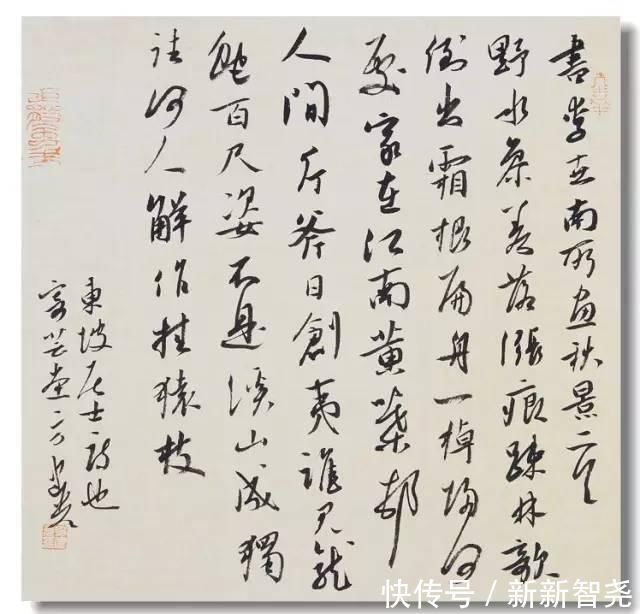 書李世南所畫秋景二首
野水參差落漲痕疎林欹
倒出霜根扁舟一棹歸何
處家在江南黃葉邨
人間斤斧日創夷誰見龍
虵百尺姿不是溪山成獨
往何人解作挂猿枝
東坡居士詩也
快传号 / 新新智尧